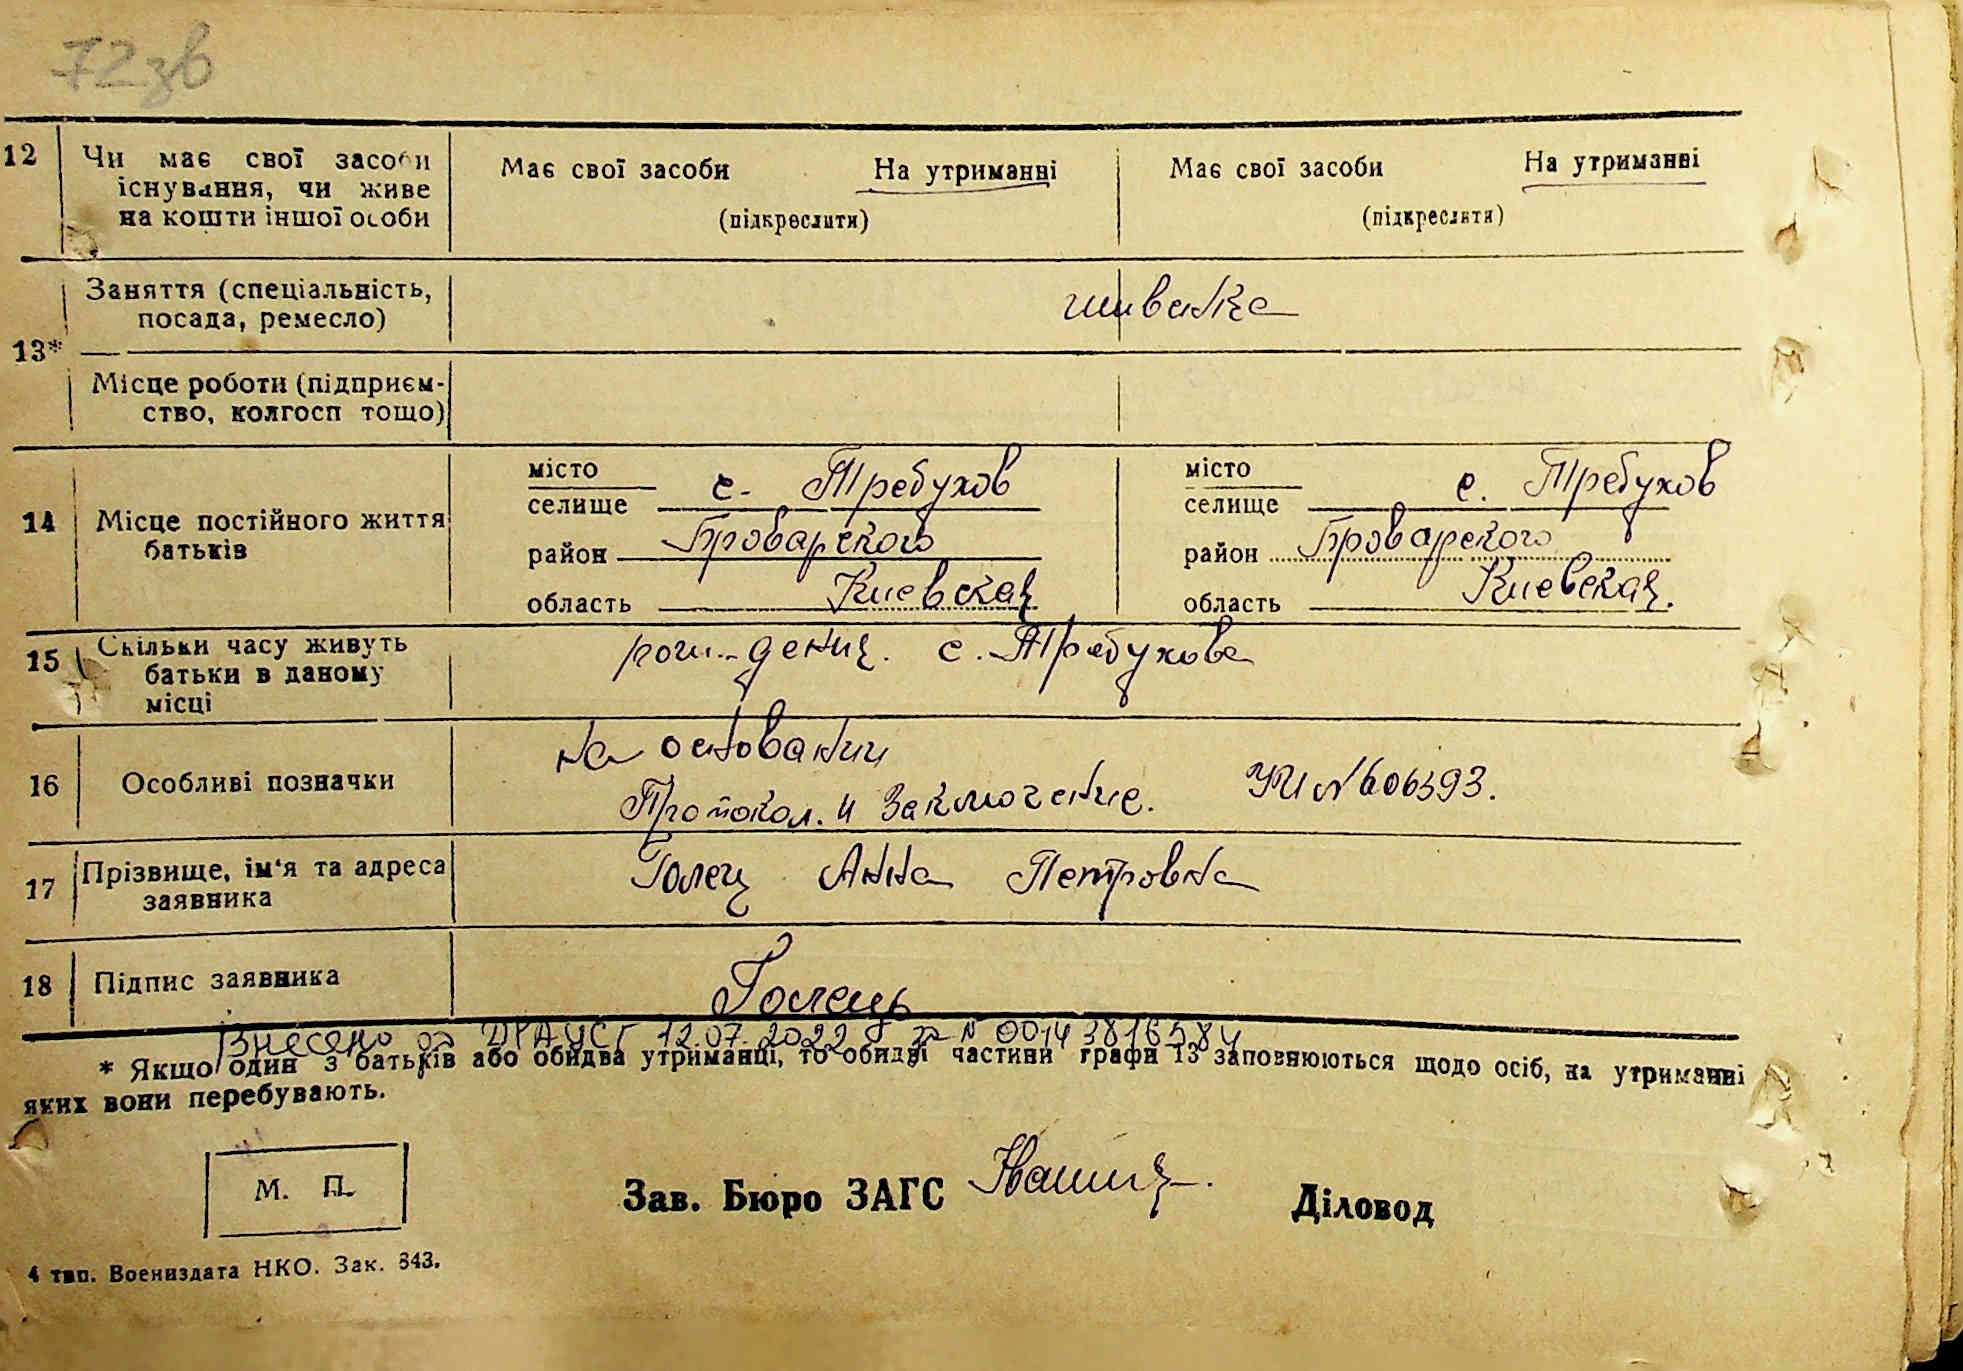 72зв
12 Чи має свої засоби Має свої засоби На утриманні Має свої засоби На утриманні
існування, чи живе
на кошти іншої особи (підкреслити) (підкреслити)
Заняття (спеціальність, швачка
посада, ремесло)
13*
Місце роботи (підприєм-
ство, колгосп тощо)
місто місто
селище с. Требухов селище с. Требухов
14 Місце постійного життя
батьків район Броварского район Броварского
область Киевская область Киевская.
15 Скільки часу живуть
батьки в даному
місці с. Требухова
на основании
16 Особливі позначки
Протокол. и Заключение. № 606393.
17 Прізвище, ім'я та адреса Голец Анна Петровна
заявника
18 Підпис заявника Голець
Внесено до ДРАЦСГ 12.07.2022 за № 00143816384
* Якщо один з батьків або обидва утриманці, то обидві частини графи 13 заповнюються щодо осіб, на утриманні
яких вони перебувають.
М. П.
Зав. Бюро ЗАГС Діловод
4 тип. Воениздата НКО. Зак. 843.